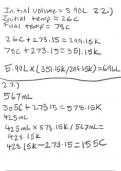 Initial volume = 5.90L 22.)
Initial temp = 26C
Final temp = 78C
26C + 273.15 = 299.15K
78C + 273.15 = 351.15K
5.90L x (351.15K/299.15K) = 6.92L
27.)
567mL
305C + 273.15 = 578.15K
425mL
425mL x 578.15K / 567mL =
433.15K
425.15K - 273.15 = 155C